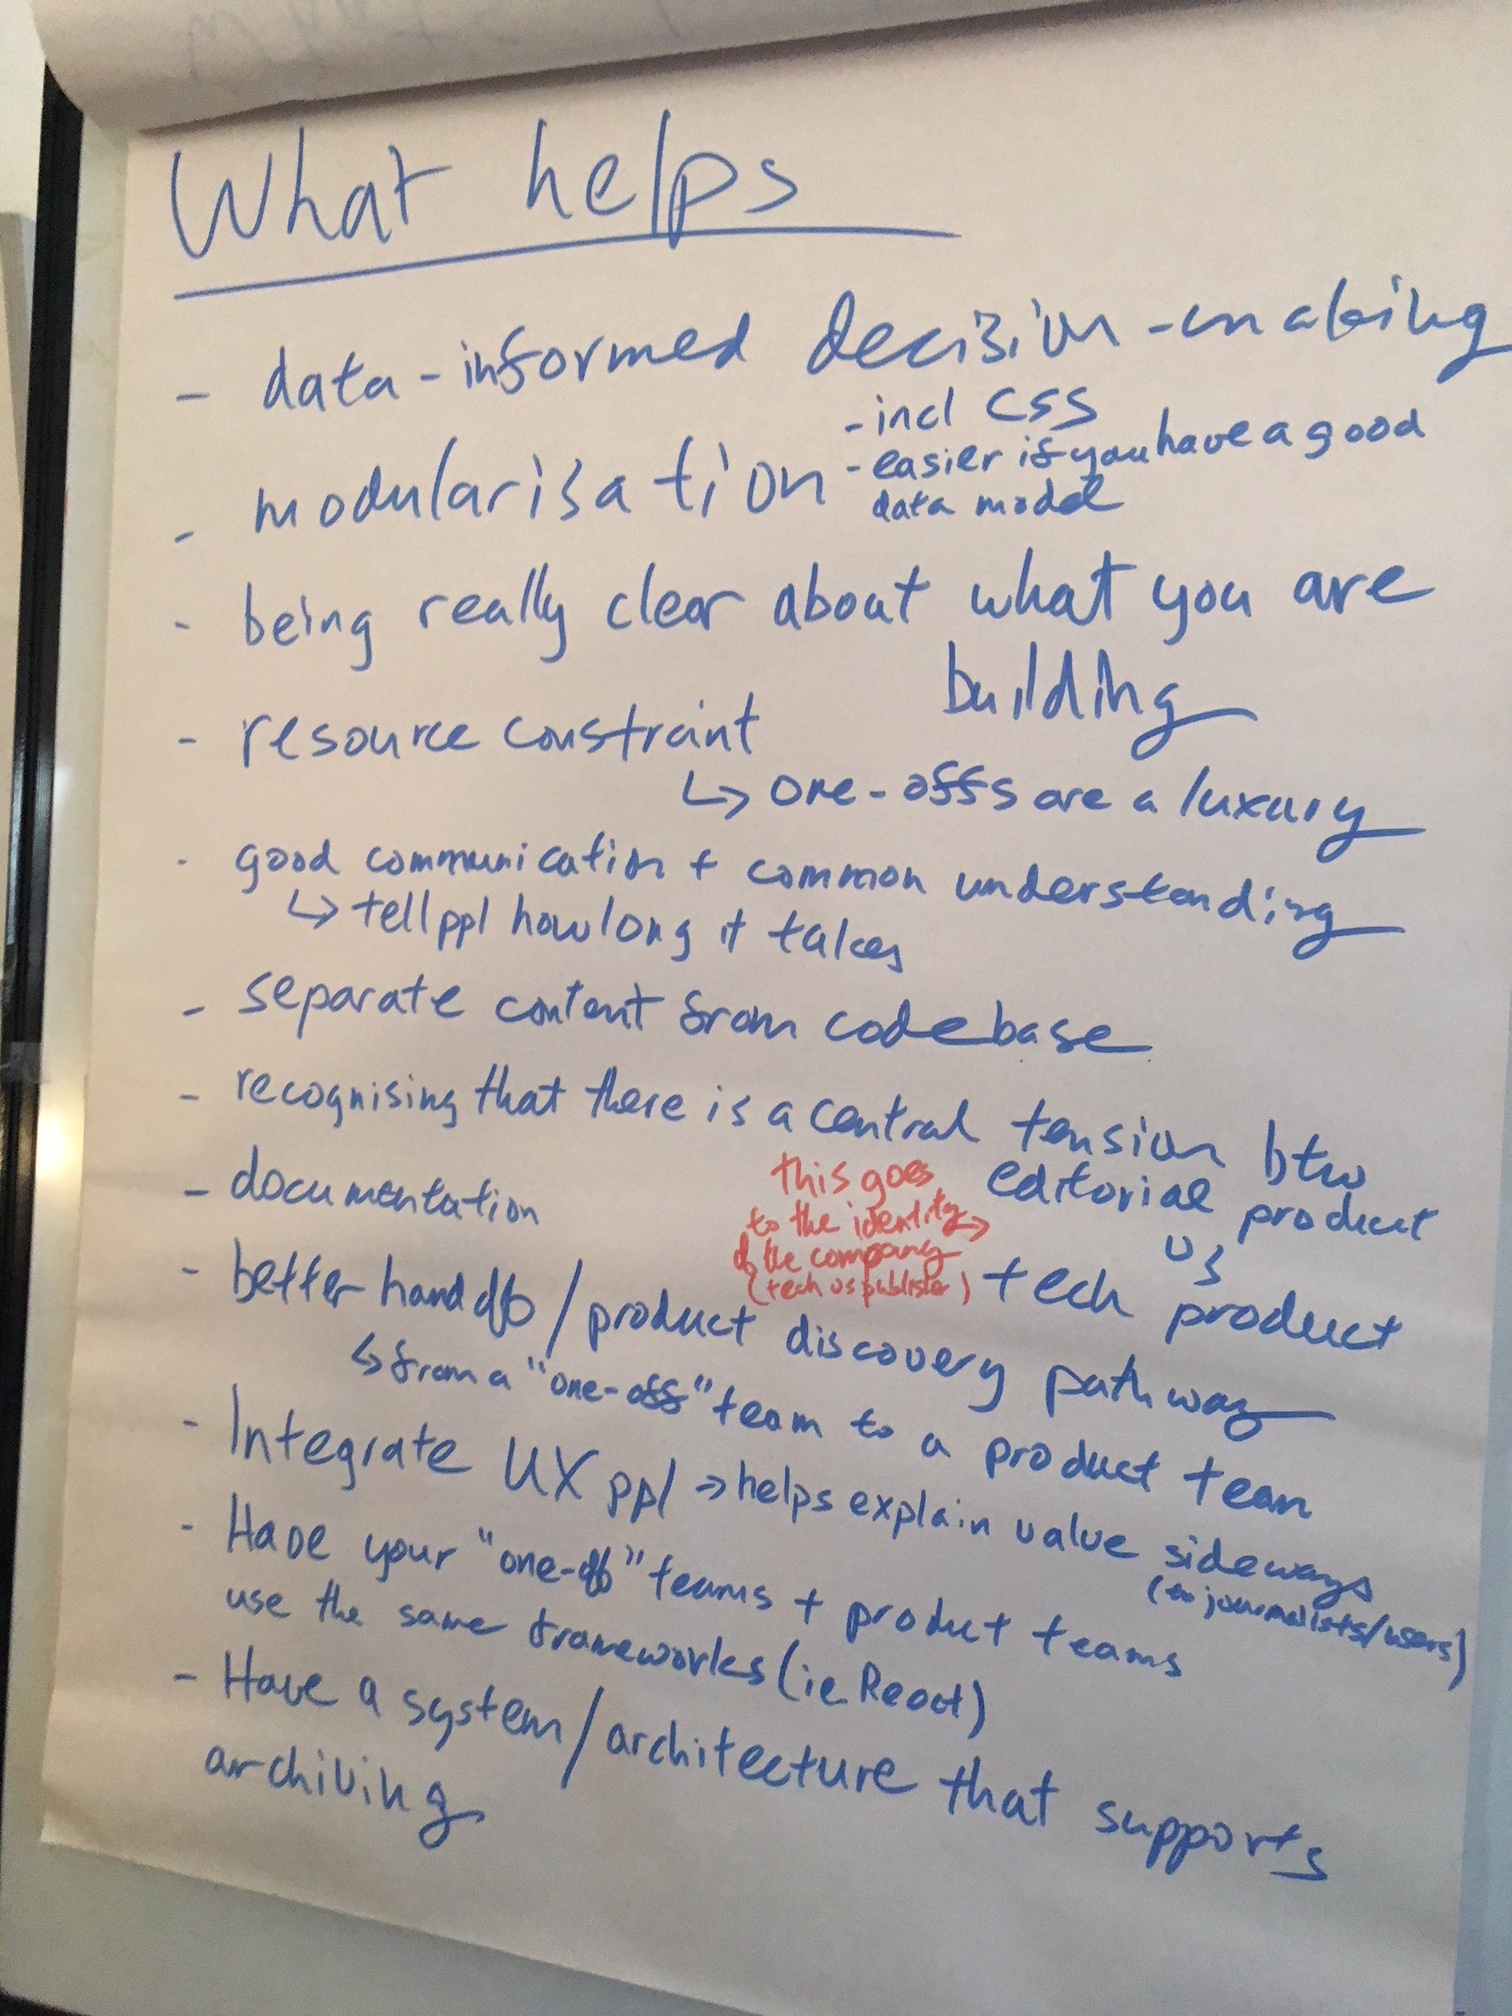 What helps
- data-informed decision-making
- modularisation
- incl CSS
- easier if you have a good
data model
- being really clear about what you are
building
- resource constraint
↳ one-offs are a luxury
- good communication + common understanding
↳ tell ppl how long it takes
- separate content from codebase
- recognising that there is a central tension btw
editorial product
vs
tech product
this goes
to the identity →
of the company
(tech vs publisher)
- documentation
- better handoff / product discovery pathway
↳ from a "one-off" team to a product team
- Integrate UX ppl → helps explain value sideways
(to journalists/users)
- Have your "one-off" teams + product teams
use the same frameworks (ie React)
- Have a system / architecture that supports
archiving